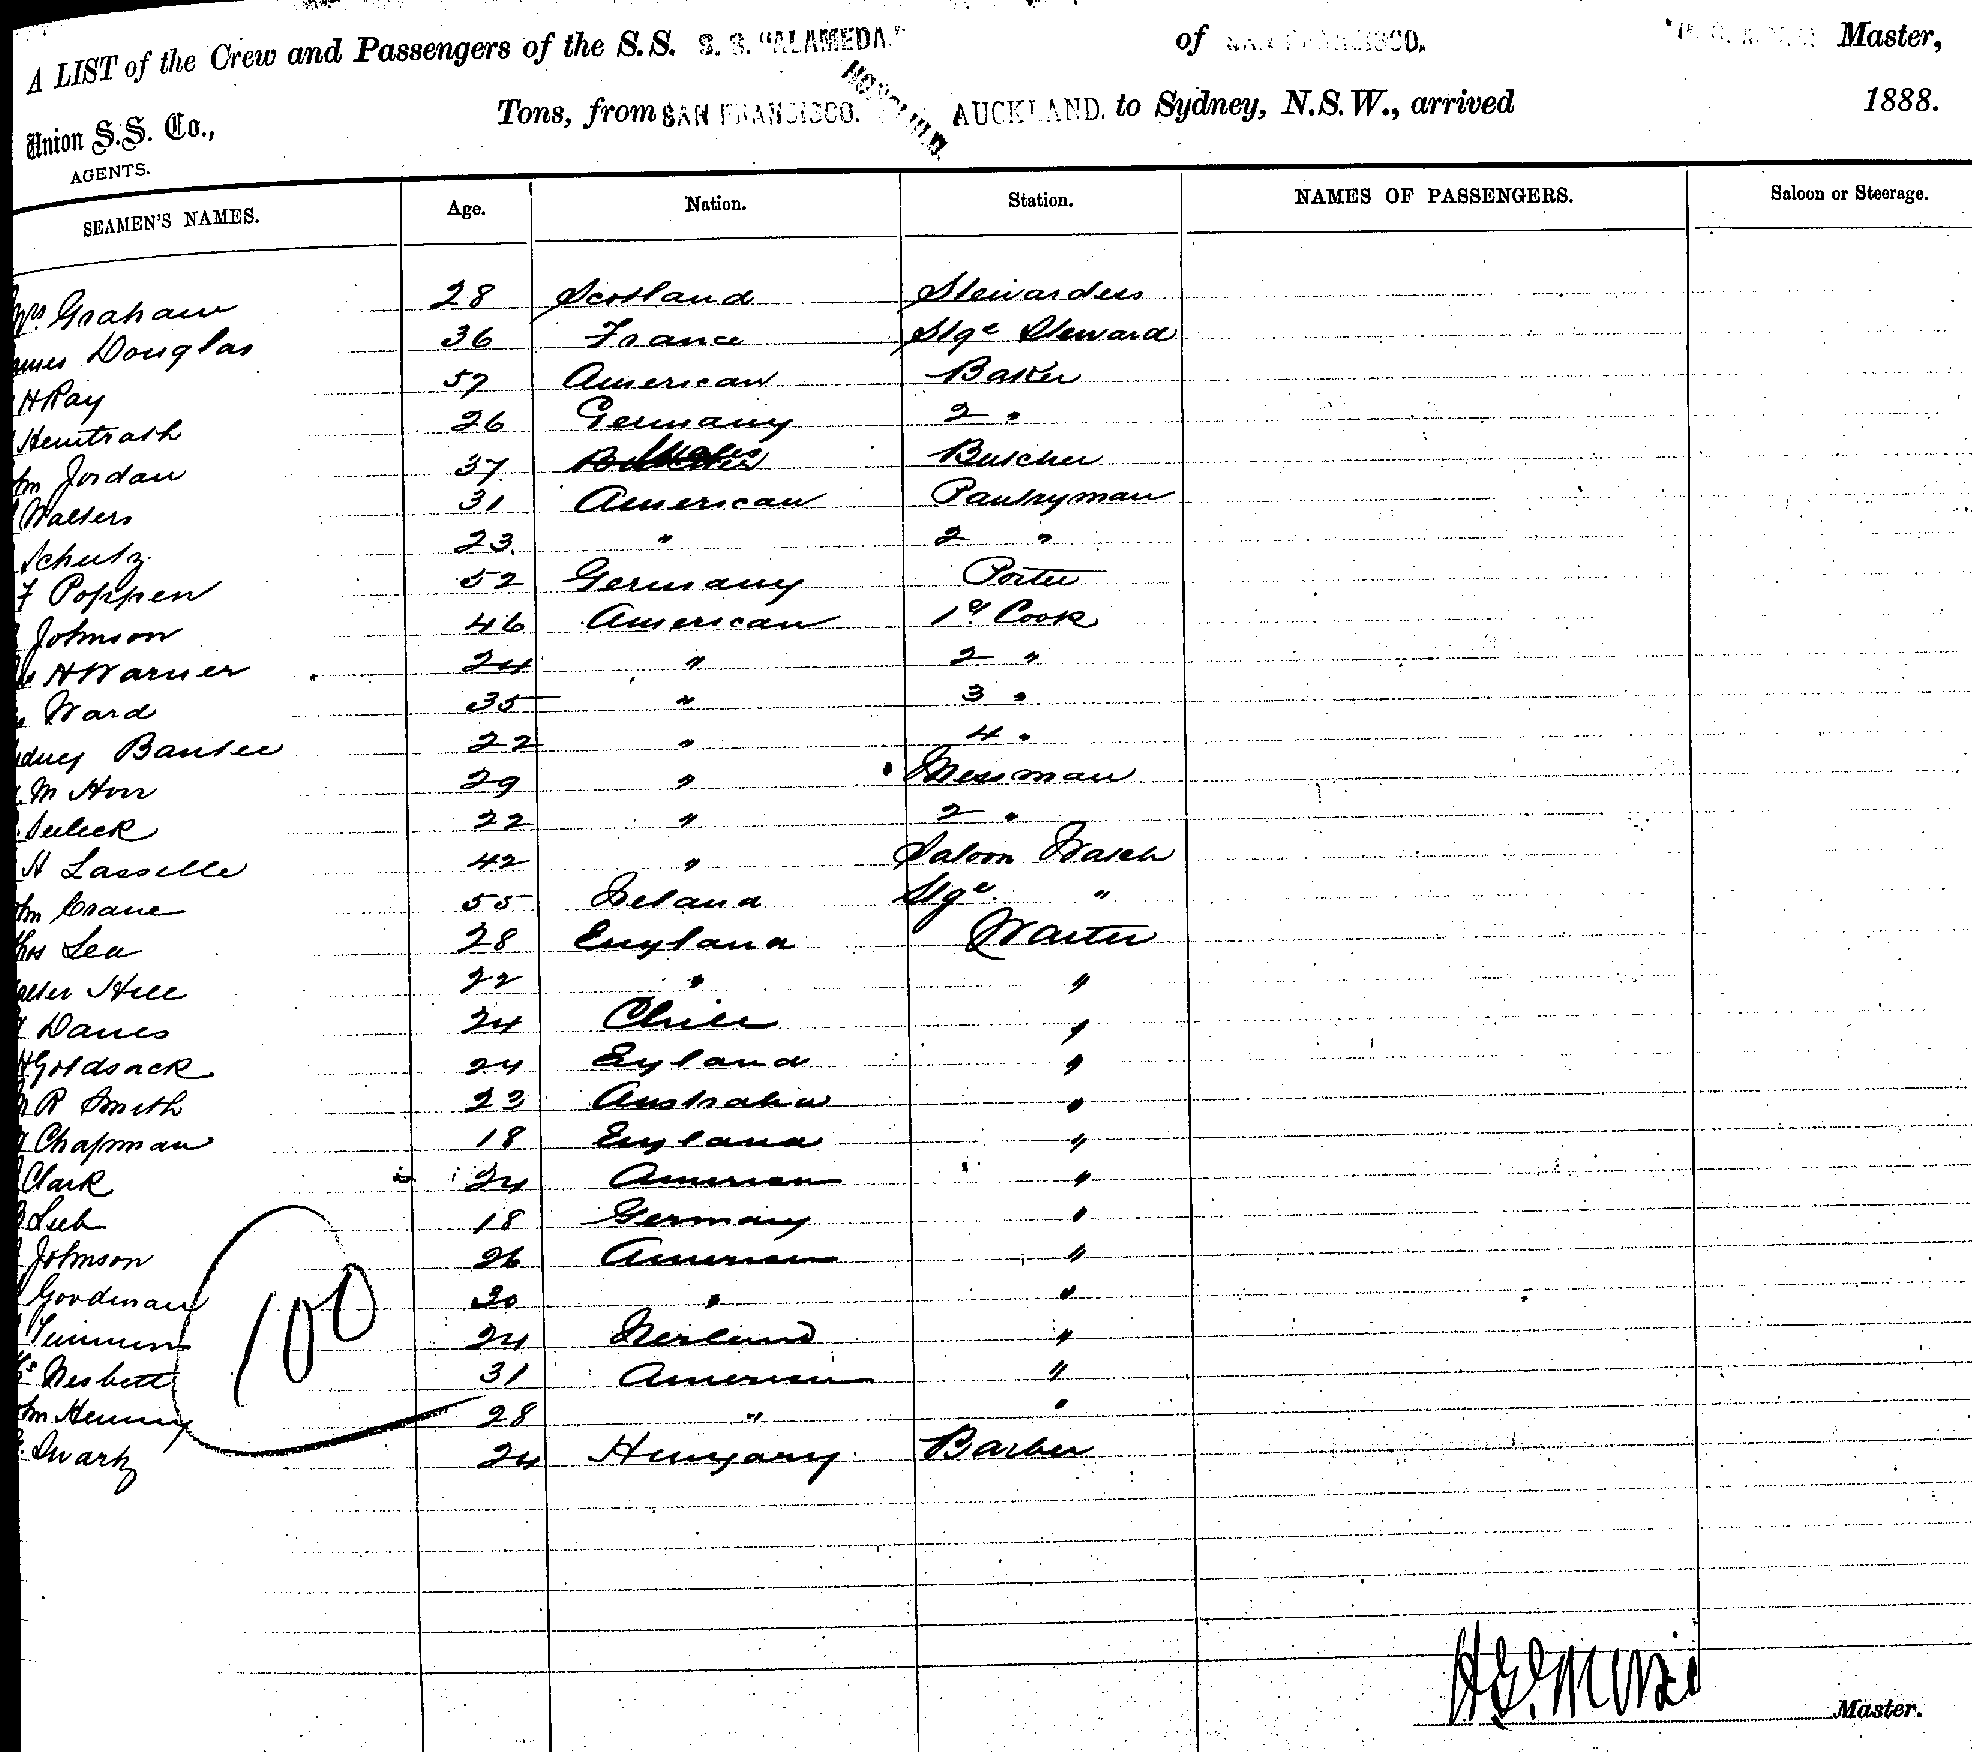 A LIST of the Crew and Passengers of the S.S. S. S. "ALAMEDA." of SAN FRANCISCO. Master,
Tons, from SAN FRANCISCO. HONOLULU. AUCKLAND. to Sydney, N.S.W., arrived 1888.
Union S.S. Co.,
AGENTS.
SEAMEN'S NAMES. Age. Nation. Station. NAMES OF PASSENGERS. Saloon or Steerage.
Mrs. Graham 28 Scotland Stewardess
Douglas 36 France Stge Steward
H Ray 57 American Baker
26 Germany 2 "
Jordan 37 Wales Butcher
Walters 31 American Pantryman
Schutz 23 " 2 "
F Poppen 52 Germany Porter
Johnson 46 American 1st Cook
H Warner 24 " 2 "
Ward 35 " 3 "
22 " 4 "
M Horr 29 " Messman
22 " 2 "
H Lasselle 42 " Saloon Watch
Crane 55 Ireland Stge. "
Lea 28 England Waiter
Hill 22 " "
Davies 24 Chili "
Goldsack 24 England "
R Smith 23 Australia "
Chapman 18 England "
Clark 24 American "
18 Germany "
Johnson 26 American "
Goodman 30 " "
24 "
Nesbett 31 American "
28 " "
Swartz 24 Hungary Barber
100
Master.